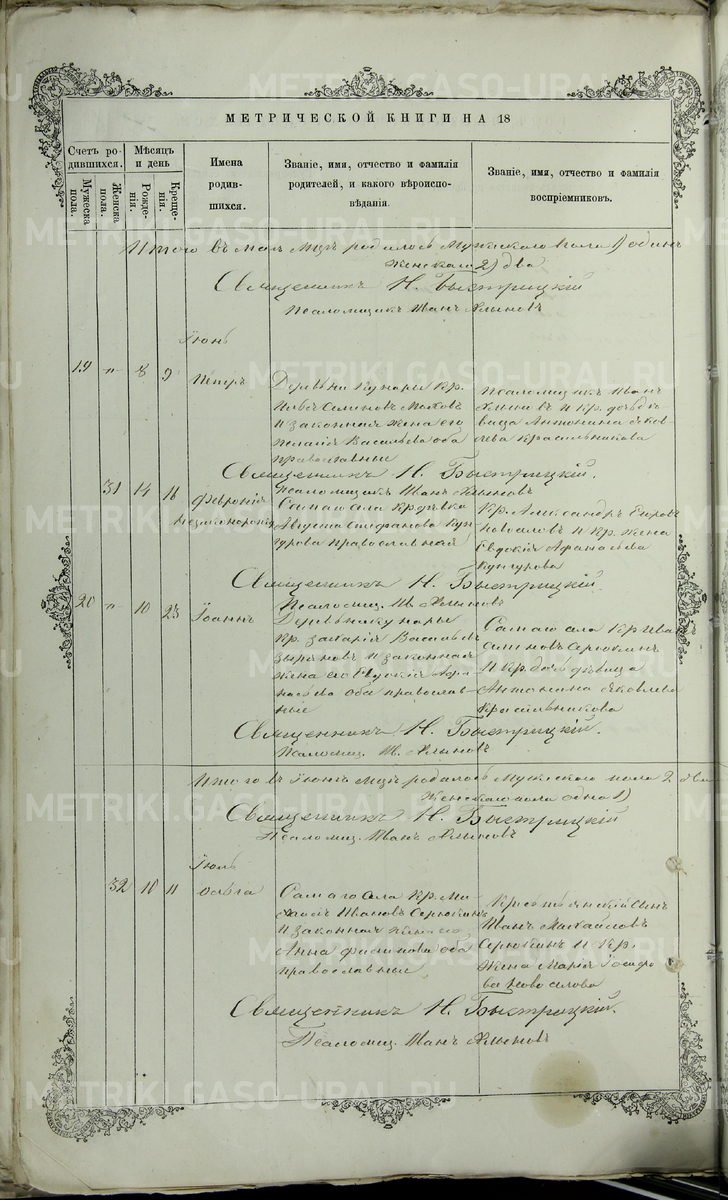 МЕТРИЧЕСКОЙ КНИГИ НА 18
Счетъ ро-
дившихся.
Мужеска пола.
Женска пола.
Мѣсяцъ
и день
Рожде-
нія.
Креще-
нія.
Имена
родив-
шихся.
Званіе, имя, отчество и фамилія
родителей, и какого вѣроиспо-
вѣданія.
Званіе, имя, отчество и фамилія
воспріемниковъ.
Итого въ Маѣ Мцѣ родилось Мужскаго пола 1) одинъ
Женскаго 2) два
Священникъ Н. Быстрицкій
Псаломщикъ Иванъ
Іюнь
19 " 8 9 Петръ
Деревни Кунары Кр.
и законная жена его
Пелагія Васильева оба
православные
Псаломщикъ Иванъ
и Кр. дочь дѣ
вица Антонина Яков
лева Красильникова
Священникъ Н. Быстрицкій.
Псаломщикъ Иванъ
31 14 16 Февронія
незаконорожд
Самаго села Кр. дѣвка
Стефанова Кун
гурова православная
Кр. Александръ
и Кр. жена
Евдокія Афанасьева
Кунгурова
Священникъ Н. Быстрицкій.
Псаломщ. Ив.
20 " 10 23 Іоаннъ
Деревни Кунары
Кр. Захарій Васильевъ
Зыряновъ и законная
жена его Евдокія Афа
насьева оба православ-
ные
Самаго села Кр. Иванъ
Серюкинъ
и Кр. дочь дѣвица
Антонина Яковлева
Красильникова
Священникъ Н. Быстрицкій.
Псаломщ. Ив.
Итого въ Іюнѣ Мцѣ родилось Мужескаго пола 2 два
Женскаго пола одна 1)
Священникъ Н. Быстрицкій
Псаломщ. Иванъ
Іюль
32 10 11 Ольга
Самаго села Кр. Ми-
хаилъ Ивановъ Серюкинъ
и законная жена его
Анна Филипова оба
православные
Крестьянскій сынъ
Иванъ Михайловъ
Серюкинъ и Кр.
жена Марія Іосифо
ва Новоселова
Священникъ Н. Быстрицкій.
Псаломщ. Иванъ
METRIKI.GASO-URAL.RU